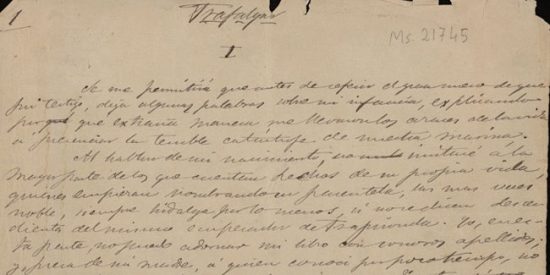 1
Trafalgar
Ms. 21745
I
Se me permitirá que antes de referir el gran suceso de que
fui testigo, diga algunas palabras sobre mi infancia, explicando
por qué extraña manera me llevaron los azares de la vida
a presenciar la terrible catástrofe de nuestra marina.
Al hablar de mi nacimiento, no imitaré a la
mayor parte de los que cuentan hechos de su propia vida,
quienes empiezan nombrando su parentela, las mas veces
noble, siempre hidalga por lo menos, si no se dicen descen
dientes del mismo emperador de Trapisonda. Yo, en es
ta parte no puedo adornar mi libro con sonoros apellidos,
y fuera de mi madre, a quien conocí por poco tiempo, no